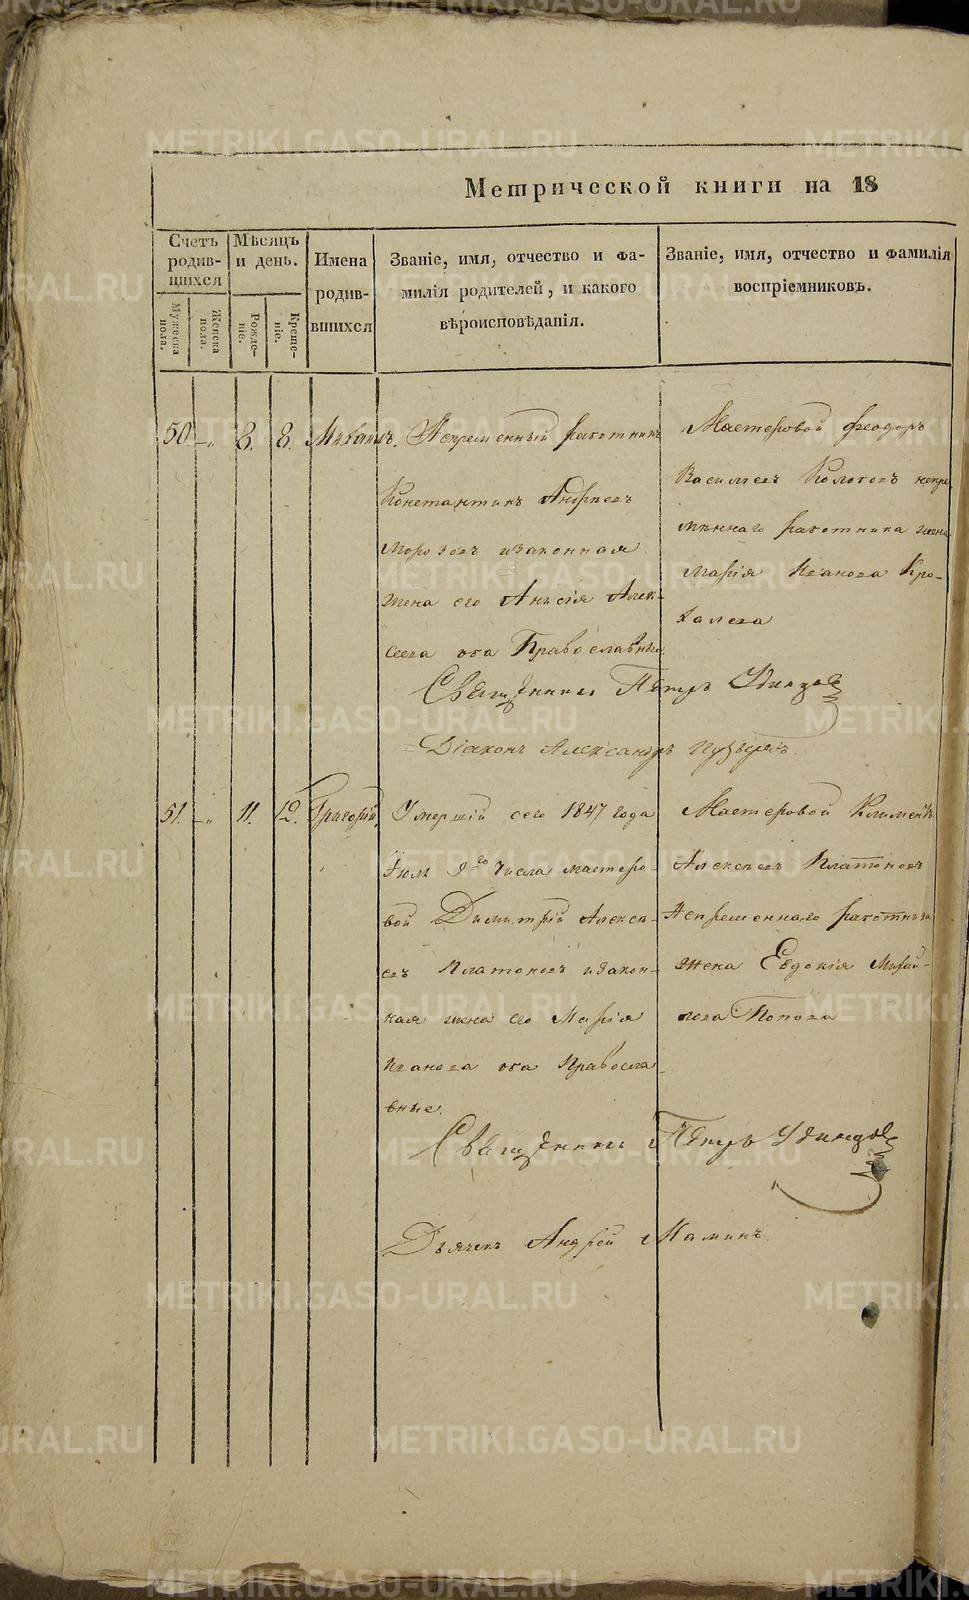 Метрической книги на 18
Счетъ родив- шихся
Мѣсяцъ и день.
Имена родив- вшихся
Званіе, имя, отчество и фа-
милія родителей, и какого
вѣроисповѣданія.
Званіе, имя, отчество и фамилія
воспріемниковъ.
Мужеска пола.
Женска пола.
Рожде- ніе.
Креще- ніе.
50. — „ 8. 8. Михаилъ.
Непременный работникъ
Константинъ Андреевъ
Морозовъ и законная
жена его Анисія Алек-
сеева оба Православные
Мастеровой Феодоръ
Васильевъ непре-
мѣннаго работника жена
Марія Иванова Кро-
халева
Священникъ Петръ Удинцовъ
Діаконъ Александръ
51. — „ 11. 12. Григорій.
Умершій сего 1847 года
Іюля 9го числа мастеро-
вой Димитрій Алексѣ-
евъ Платоновъ и закон-
ная жена его Марія
Иванова оба Правосла-
вные.
Мастеровой Климентъ
Алексѣевъ Платоновъ
Непременнаго работника
жена Евдокія Михай-
лова Попова
Священникъ Петръ Удинцовъ
Дьячекъ Андрей Маминъ
METRIKI.GASO-URAL.RU